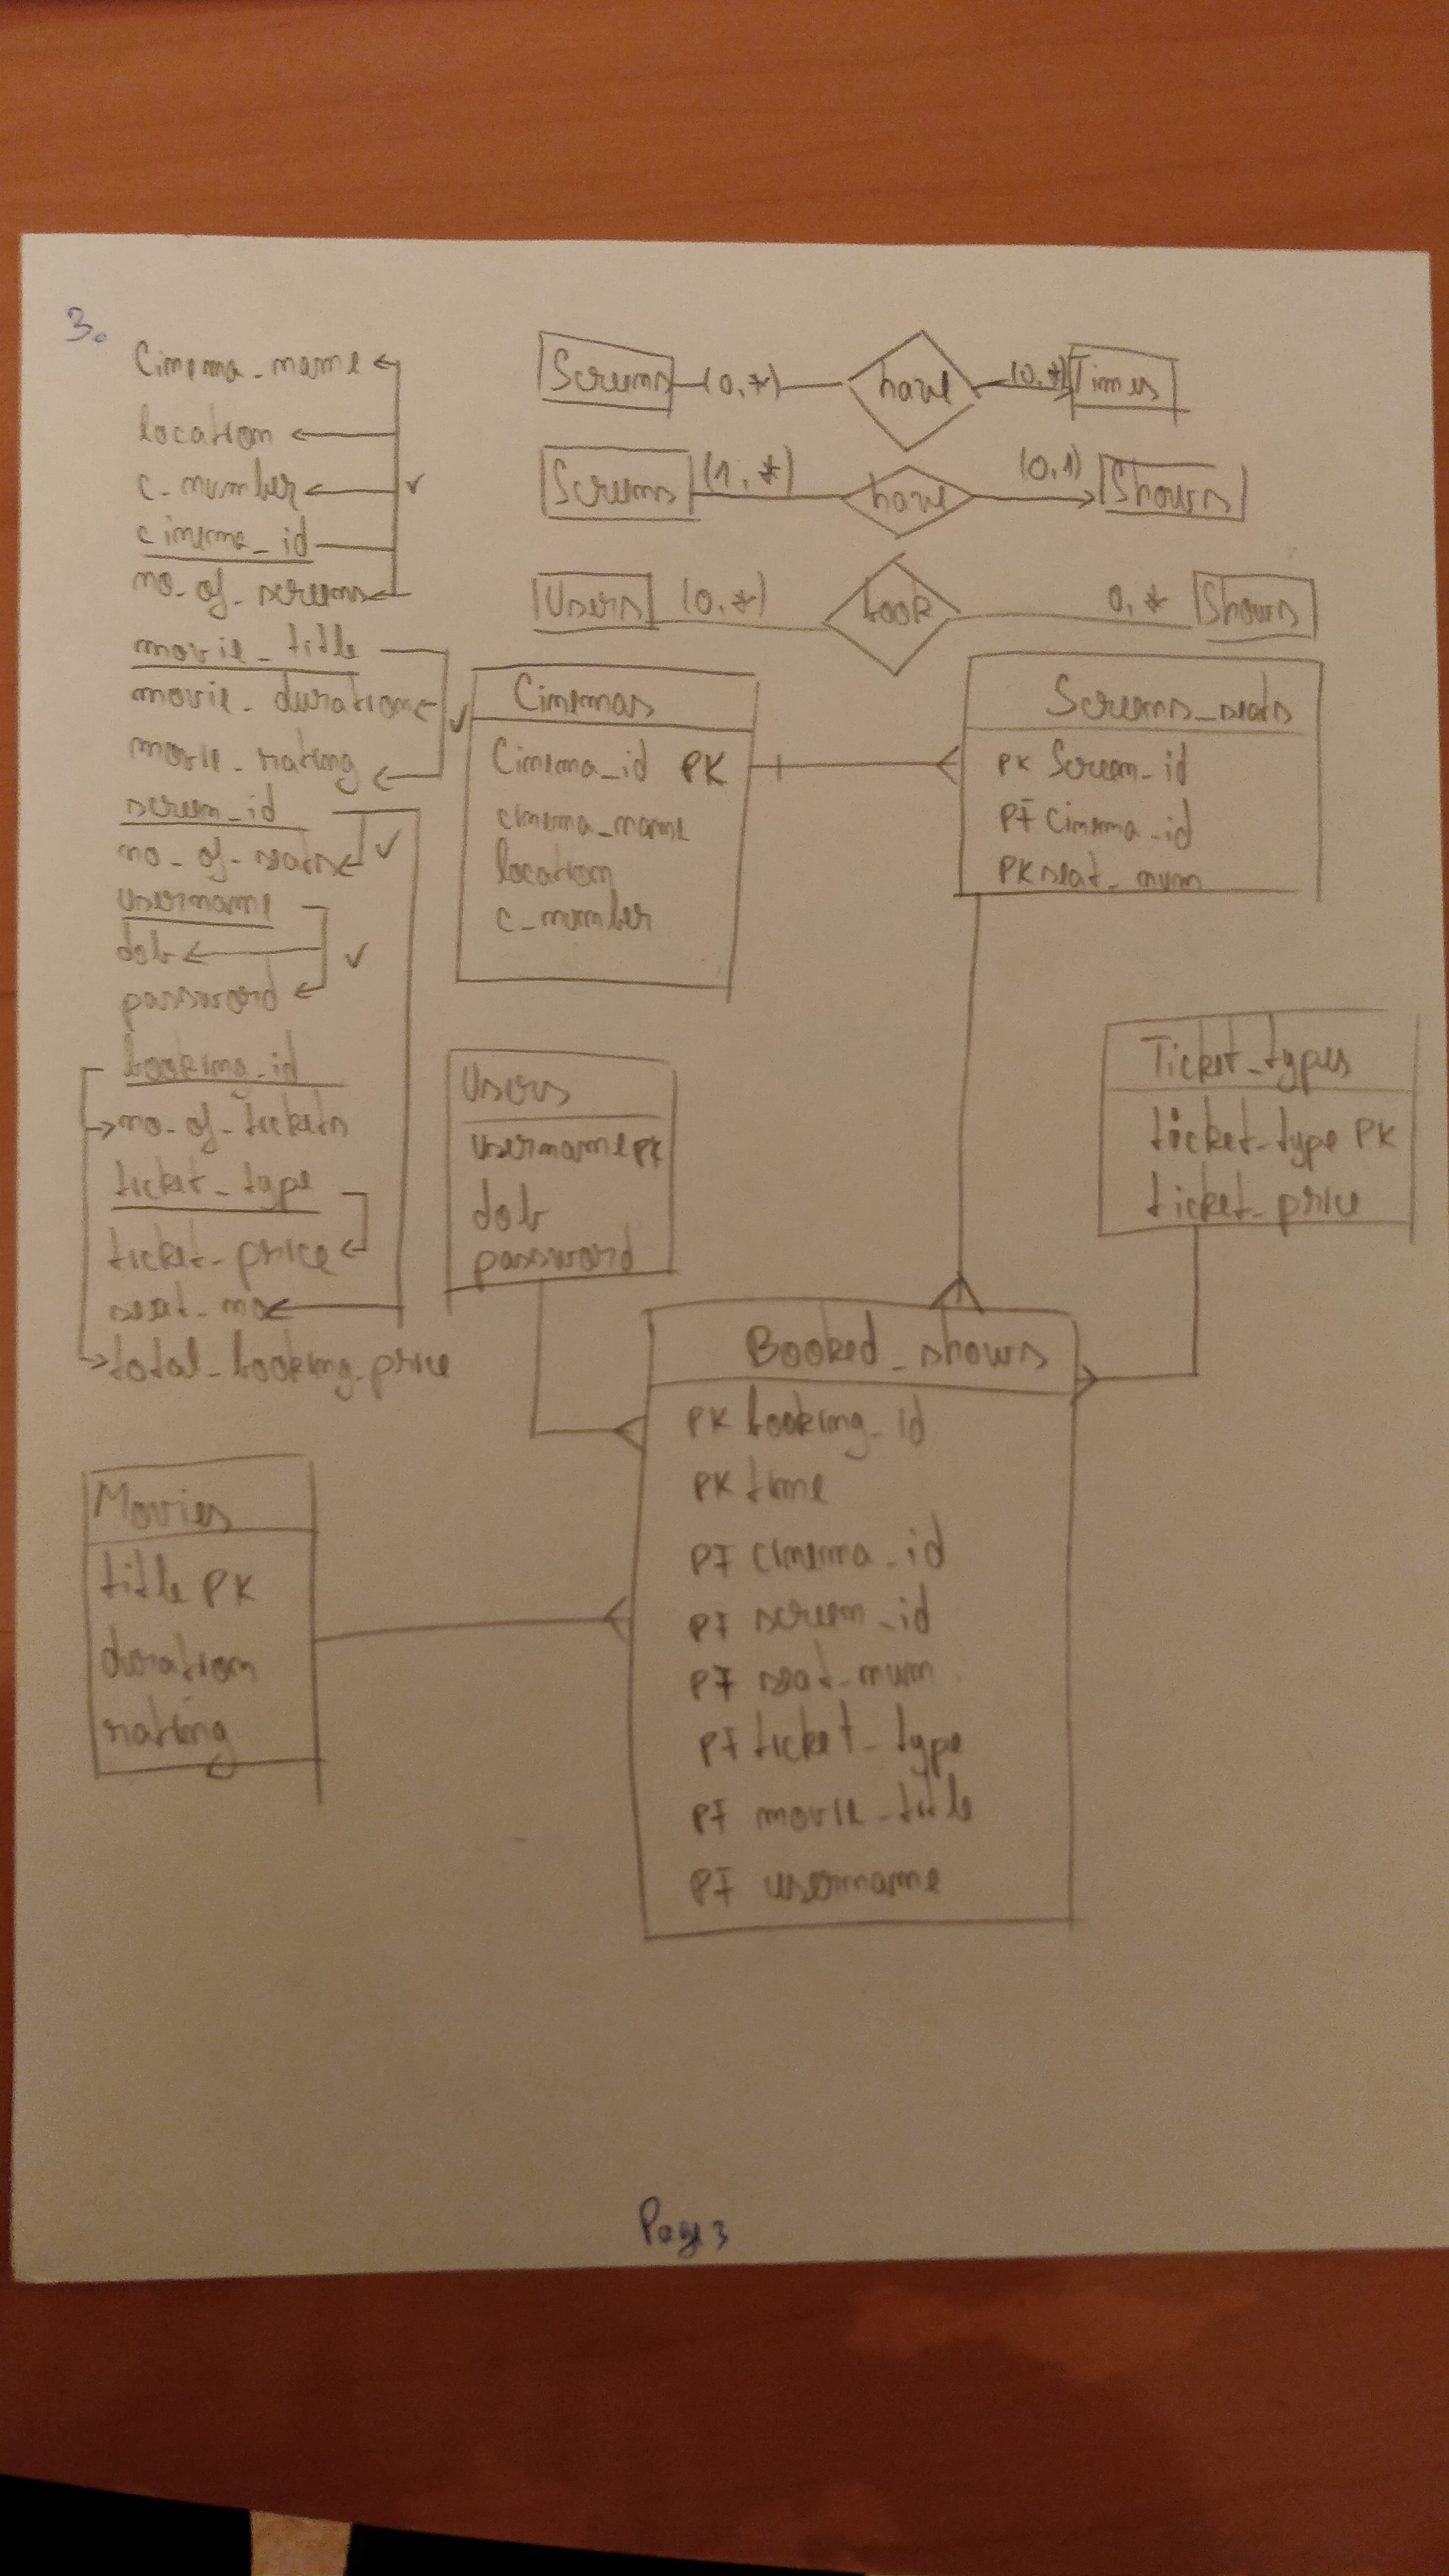 3.
Cinema_name
location
c_number
cinema_id
no_of_screens
movie_title
movie_duration
movie_rating
screen_id
no_of_seats
username
dob
password
booking_id
no_of_tickets
ticket_type
ticket_price
seat_no
total_booking_price
Screens (0,*) have (0,*) Times
Screens (1,*) have (0,1) Shows
Users (0,*) book 0,* Shows
Cinemas
Cinema_id PK
cinema_name
location
c_number
Screens_seats
PK Screen_id
PF Cinema_id
PK seat_num
Users
username PK
dob
password
Ticket_types
ticket_type PK
ticket_price
Booked_shows
PK booking_id
PK time
PF cinema_id
PF screen_id
PF seat_num
PF ticket_type
PF movie_title
PF username
Movies
title PK
duration
rating
Page 3